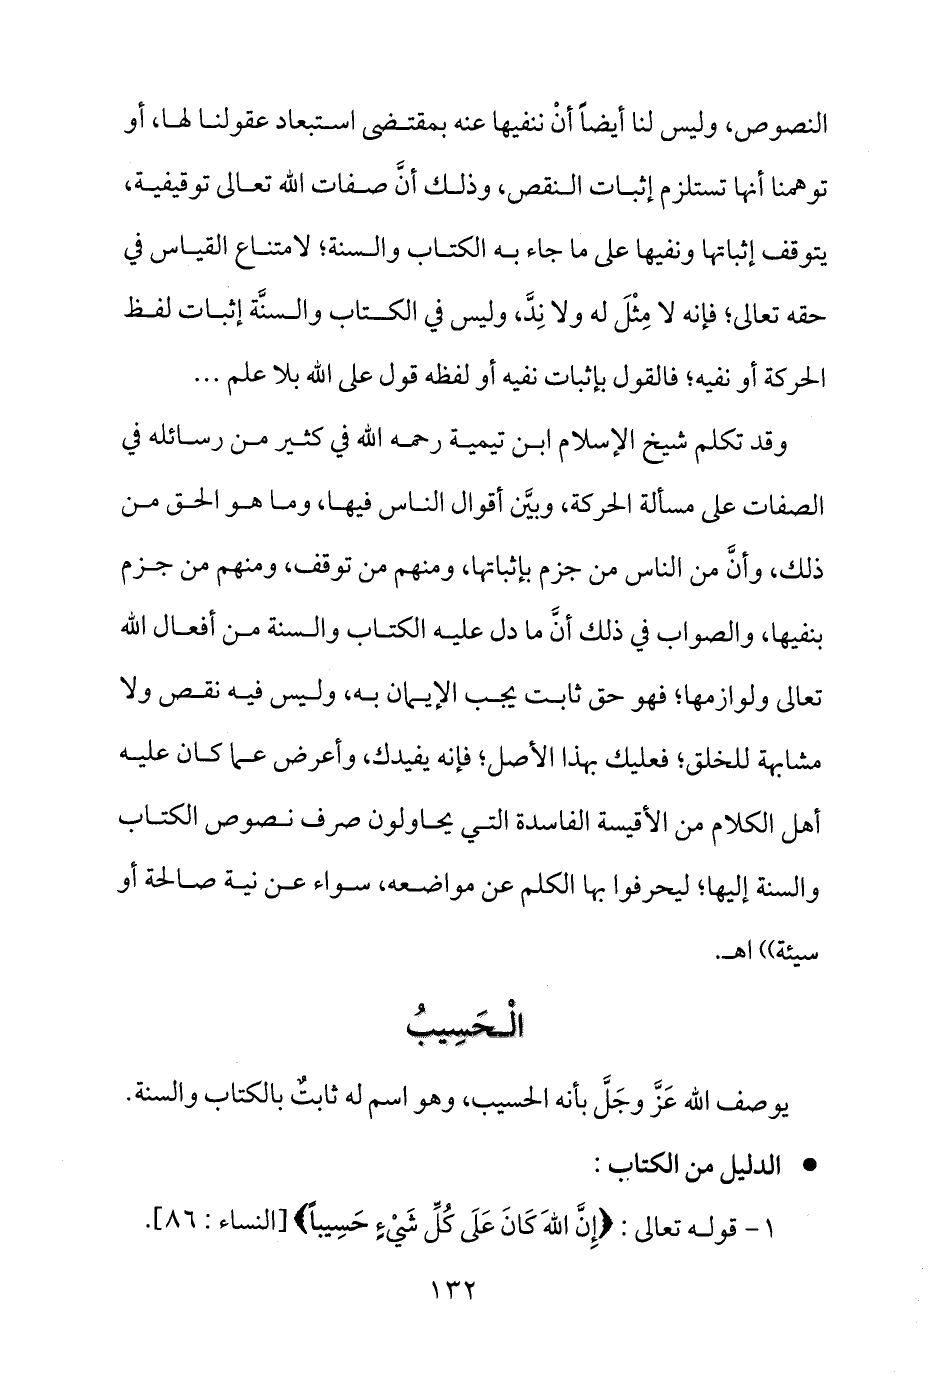 النصوص، وليس لنا أيضاً أنْ ننفيها عنه بمقتضى استبعاد عقولنا لها، أو
توهمنا أنها تستلزم إثبات النقص، وذلك أنَّ صفات الله تعالى توقيفية،
يتوقف إثباتها ونفيها على ما جاء به الكتاب والسنة؛ لامتناع القياس في
حقه تعالى؛ فإنه لا مِثْلَ له ولا نِدَّ، وليس في الكتاب والسنَّة إثبات لفظ
الحركة أو نفيه؛ فالقول بإثبات نفيه أو لفظه قول على الله بلا علم ...
وقد تكلم شيخ الإسلام ابن تيمية رحمه الله في كثير من رسائله في
الصفات على مسألة الحركة، وبيَّن أقوال الناس فيها، وما هو الحق من
ذلك، وأنَّ من الناس من جزم بإثباتها، ومنهم من توقف، ومنهم من جزم
بنفيها، والصواب في ذلك أنَّ ما دل عليه الكتاب والسنة من أفعال الله
تعالى ولوازمها؛ فهو حق ثابت يجب الإيمان به، وليس فيه نقص ولا
مشابهة للخلق؛ فعليك بهذا الأصل؛ فإنه يفيدك، وأعرض عما كان عليه
أهل الكلام من الأقيسة الفاسدة التي يحاولون صرف نصوص الكتاب
والسنة إليها؛ ليحرفوا بها الكلم عن مواضعه، سواء عن نية صالحة أو
سيئة)) اهـ.
الْحَسِيبُ
يوصف الله عَزَّ وجَلَّ بأنه الحسيب، وهو اسم له ثابتٌ بالكتاب والسنة.
• الدليل من الكتاب :
١- قوله تعالى : ﴿إِنَّ اللهَ كَانَ عَلَى كُلِّ شَيْءٍ حَسِيباً﴾ [النساء : ٨٦].
١٣٢